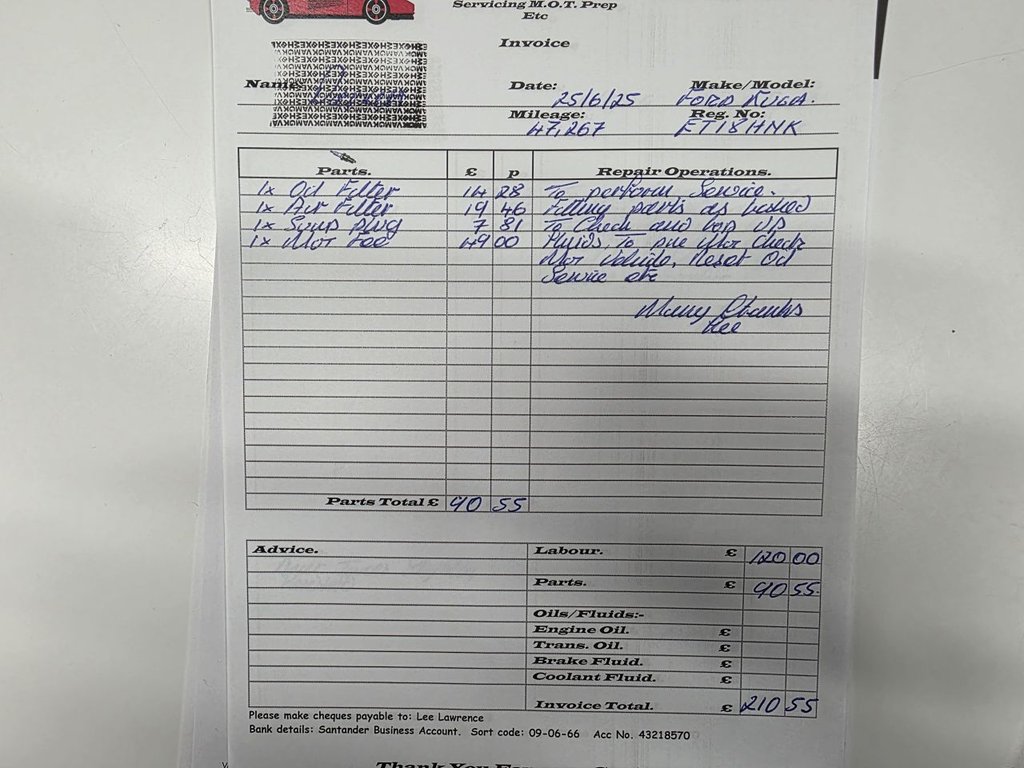 Servicing M.O.T. Prep
Etc
Invoice
Name:
Date: 25/6/25
Make/Model: FORD KUGA.
Mileage: 47,267
Reg. No: ET18HNK
Parts. £ p Repair Operations.
1x Oil Filter 14 28 To perform Service.
1x Air Filter 19 46 Fitting parts as listed
1x Sump plug 7 81 To Check and top up
1x Mot Fee 49 00 Fluids, To pre Mot Check
Mot Vehicle, Reset Oil
Service etc
Many Thanks
Lee
Parts Total £ 90 55
Advice.
Labour. £ 120 00
Parts. £ 90 55
Oils/Fluids:-
Engine Oil. £
Trans. Oil. £
Brake Fluid. £
Coolant Fluid. £
Invoice Total. £ 210 55
Please make cheques payable to: Lee Lawrence
Bank details: Santander Business Account. Sort code: 09-06-66 Acc No. 43218570